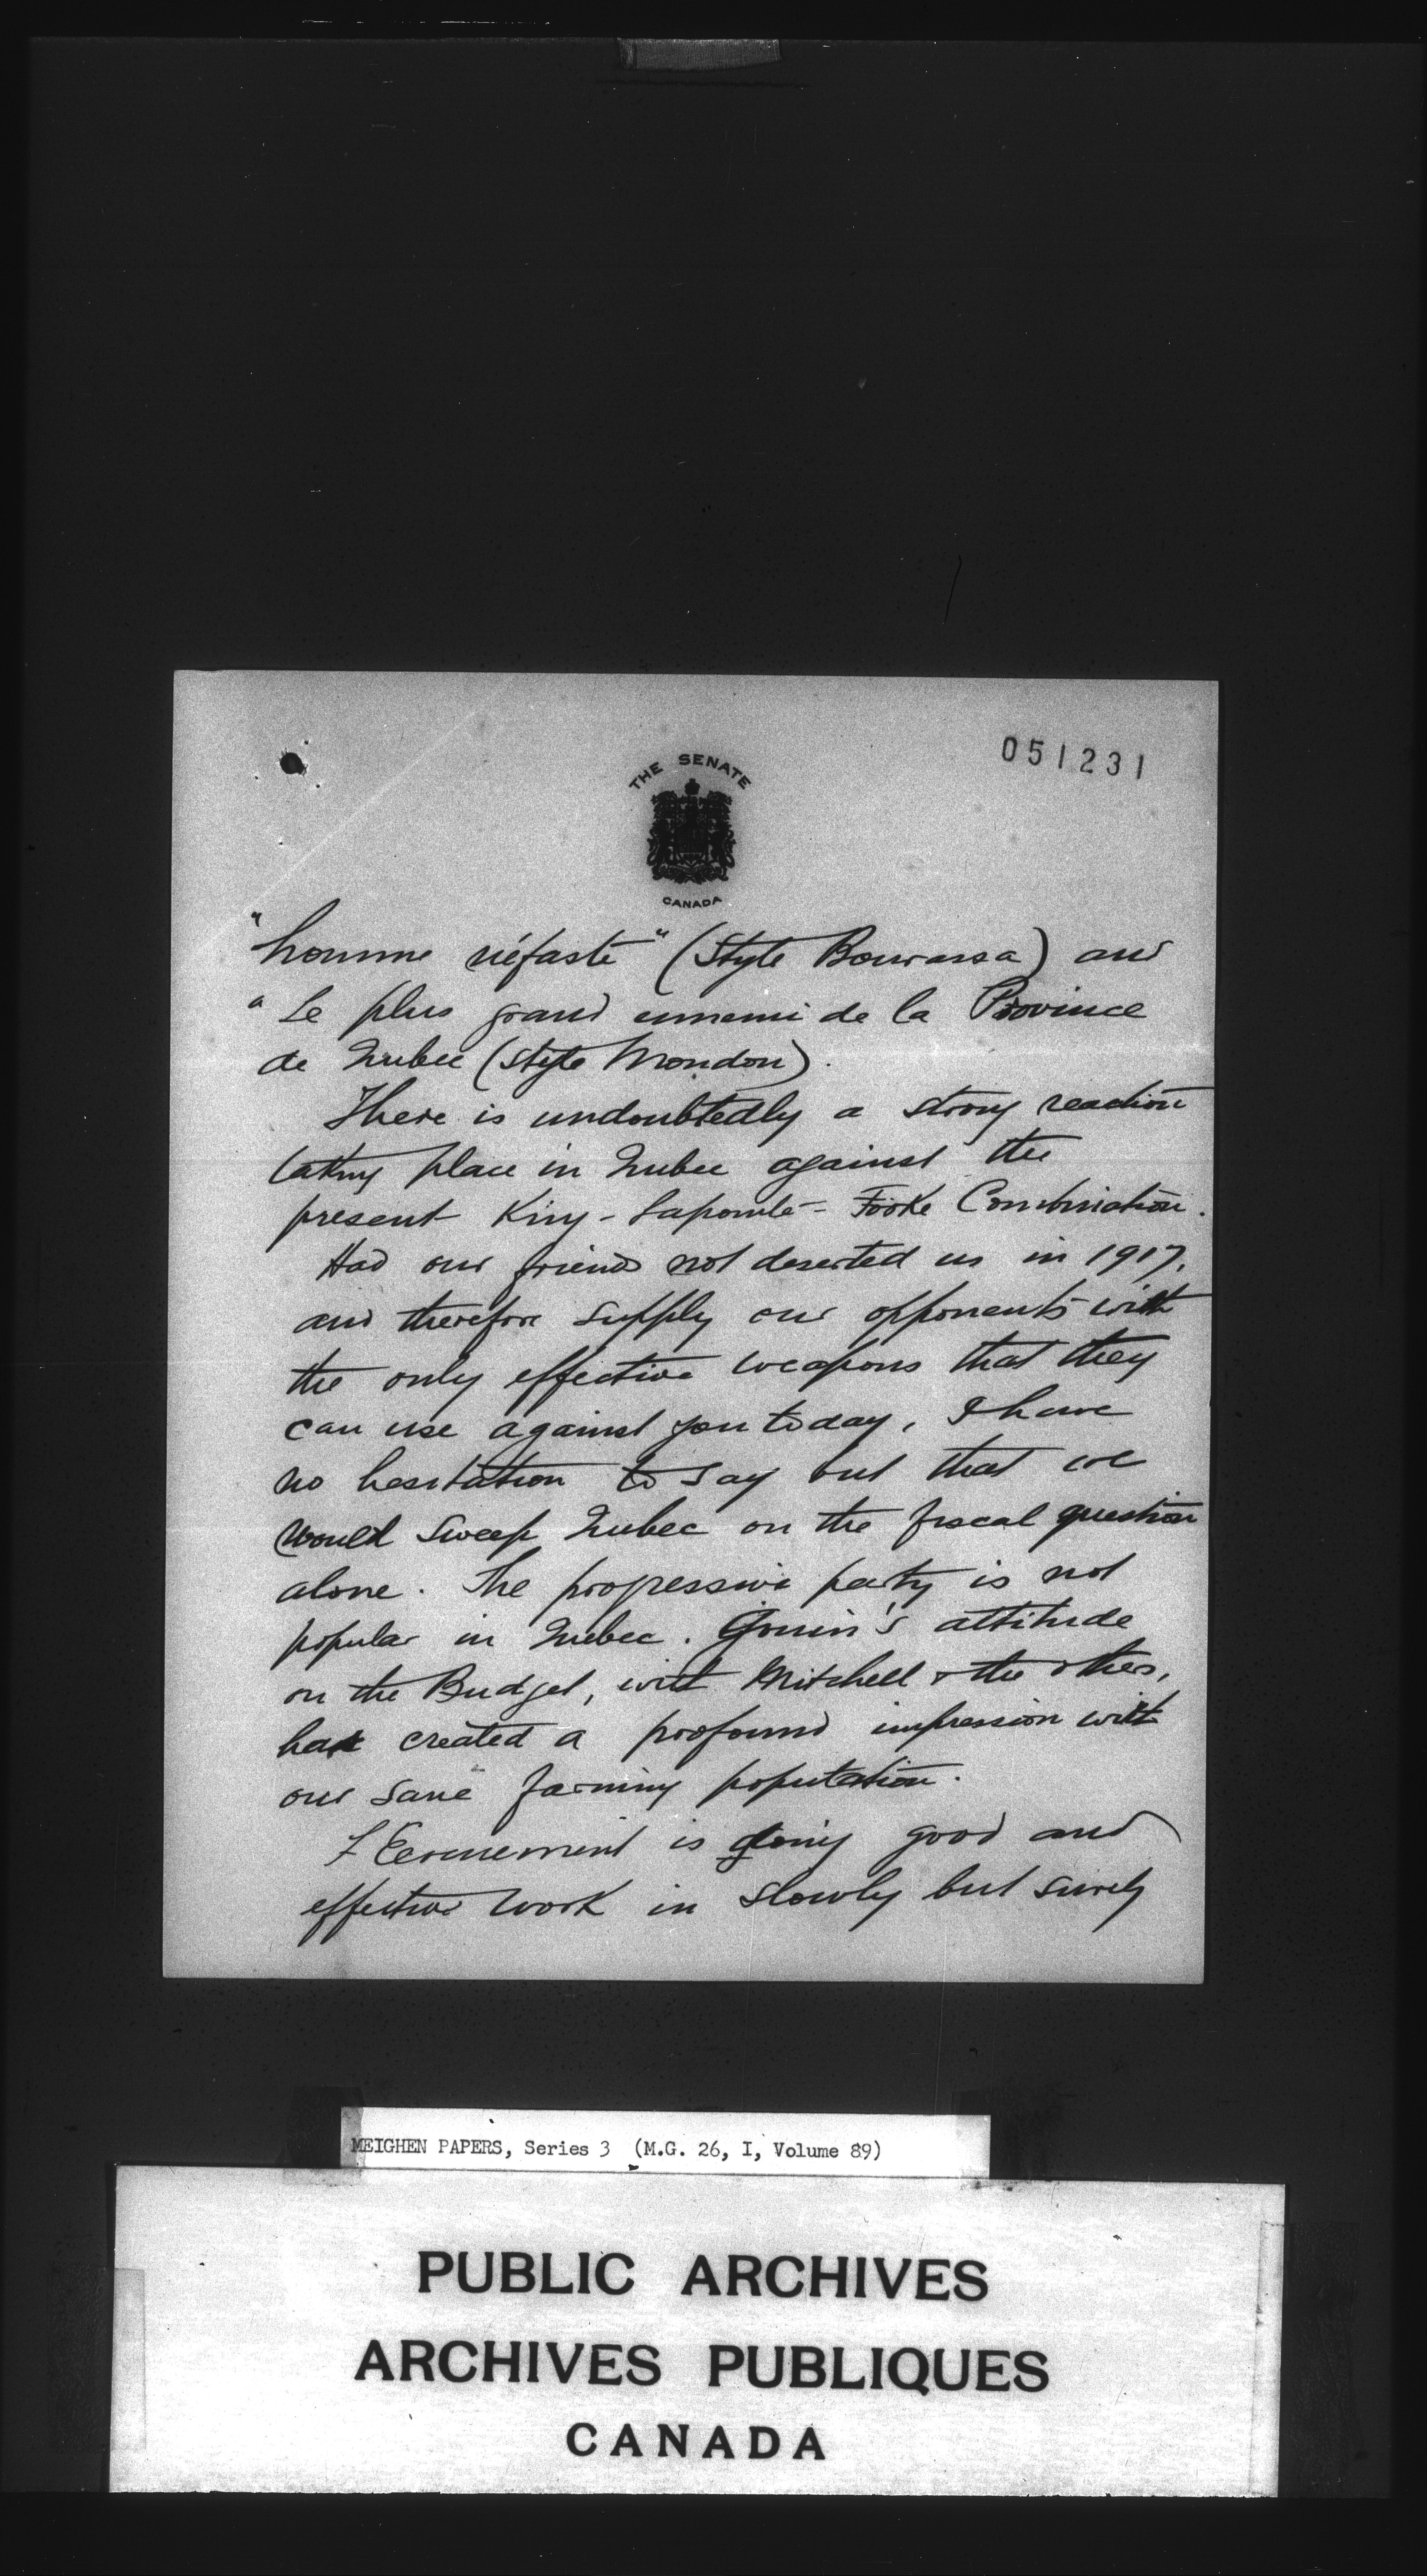 051231
THE SENATE
CANADA
"homme néfaste" (Style Bourassa) and
"Le plus grand ennemi de la Province
de Quebec (style Mondou).
There is undoubtedly a strong reaction
taking place in Quebec against the
present King - Lapointe - Forke Combination.
Had our friends not deserted us in 1917,
and therefore supply our opponents with
the only effective weapons that they
can use against you today, I have
no hesitation to say but that we
would sweep Quebec on the fiscal question
alone. The progressive party is not
popular in Quebec. Gouin's attitude
on the Budget, with Mitchell & the others,
has created a profound impression with
our sane farming population.
L'Evenement is doing good and
effective work in slowly but surely
MEIGHEN PAPERS, Series 3 (M.G. 26, I, Volume 89)
PUBLIC ARCHIVES
ARCHIVES PUBLIQUES
CANADA